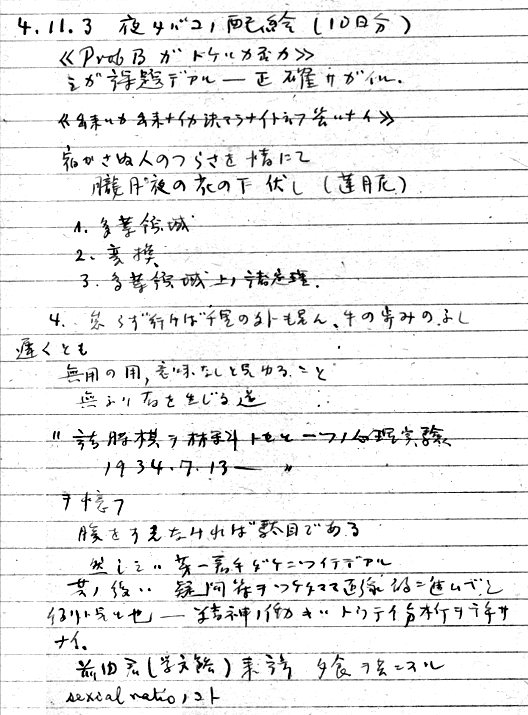 4.11.3 夜 タバコノ配給 (10日分)
≪Prob B ガ トケルカ否カ≫
之が課題デアル — 正確サガイル.
≪来ルカ来ナイカ決マラナイト云フ答ハナイ≫
宿かさぬ人のつらさを情にて
朧月夜の花の下伏し (蓮月尼)
1. 多葉領域
2. 変換
3. 多葉領域上ノ諸定理.
4. 怠らず行けば千里の外も見ん、牛の歩みのよし
遅くとも
無用の用, 意味なしと見ゆること
無より有を生じる道
" 詰将棋ヲ材料トセル一ツノ心理実験
1934.7.13— "
ヲ憶フ
腹をすえなければ駄目である
然しこハ第一着手ダケニツイテデアル
其ノ後ハ 疑問符ヲツケタママ
— 精神ノ働キハトウテイ分析ヲ許サ
ナイ.
前田君 (学文館) 来訪 夕食ヲ共ニスル
sexcal ratioノコト